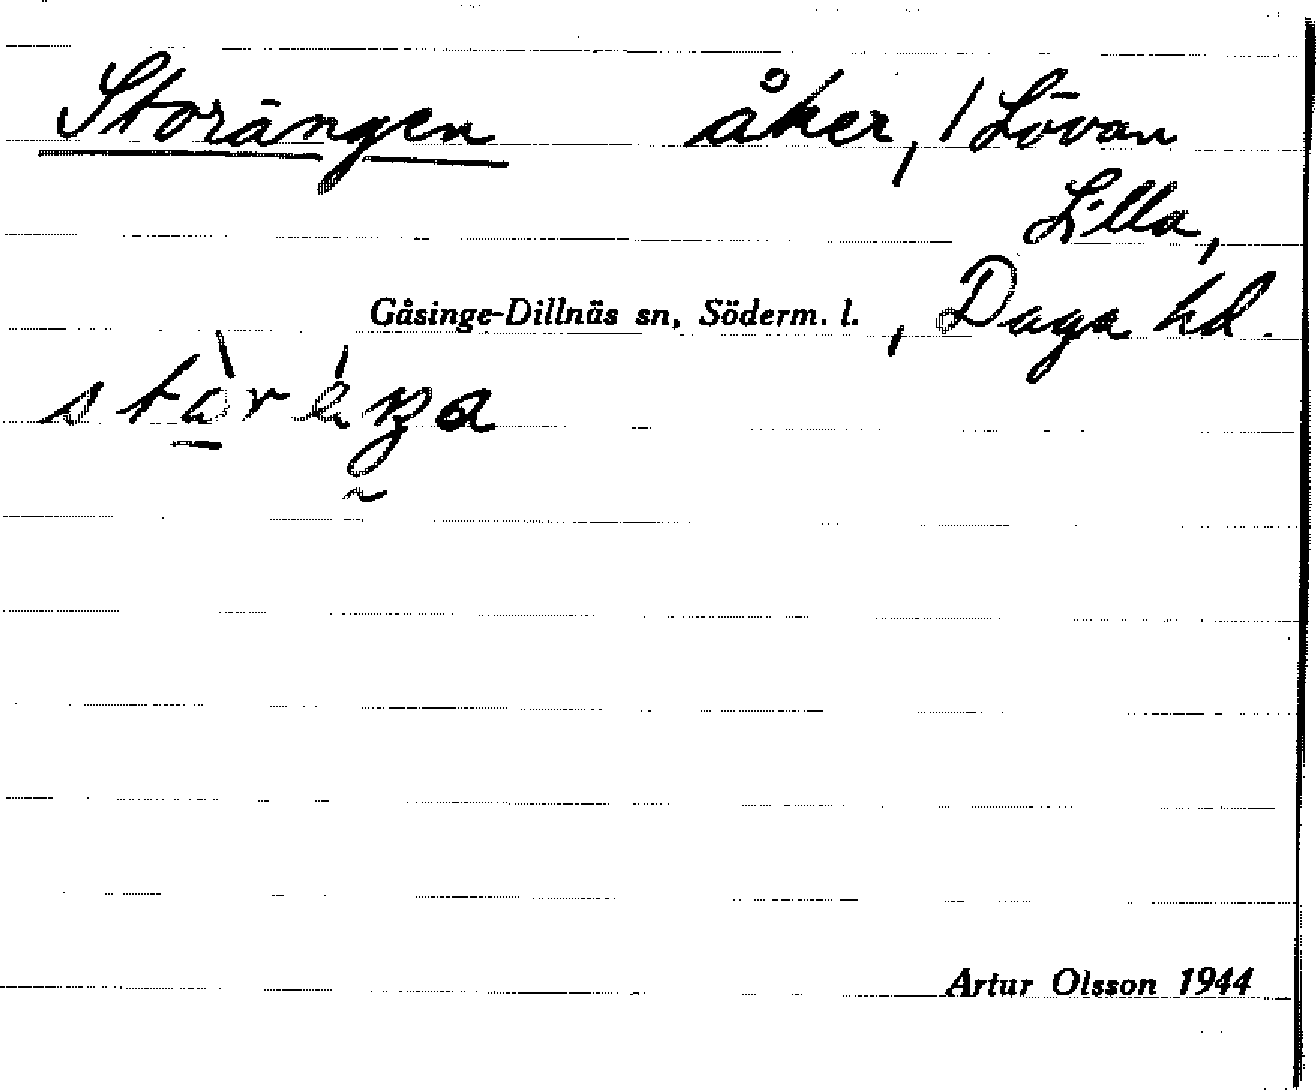 Storängen åker, / Lövan
Lilla,
Gåsinge-Dillnäs sn, Söderm. l. , Daga hd.
Artur Olsson 1944